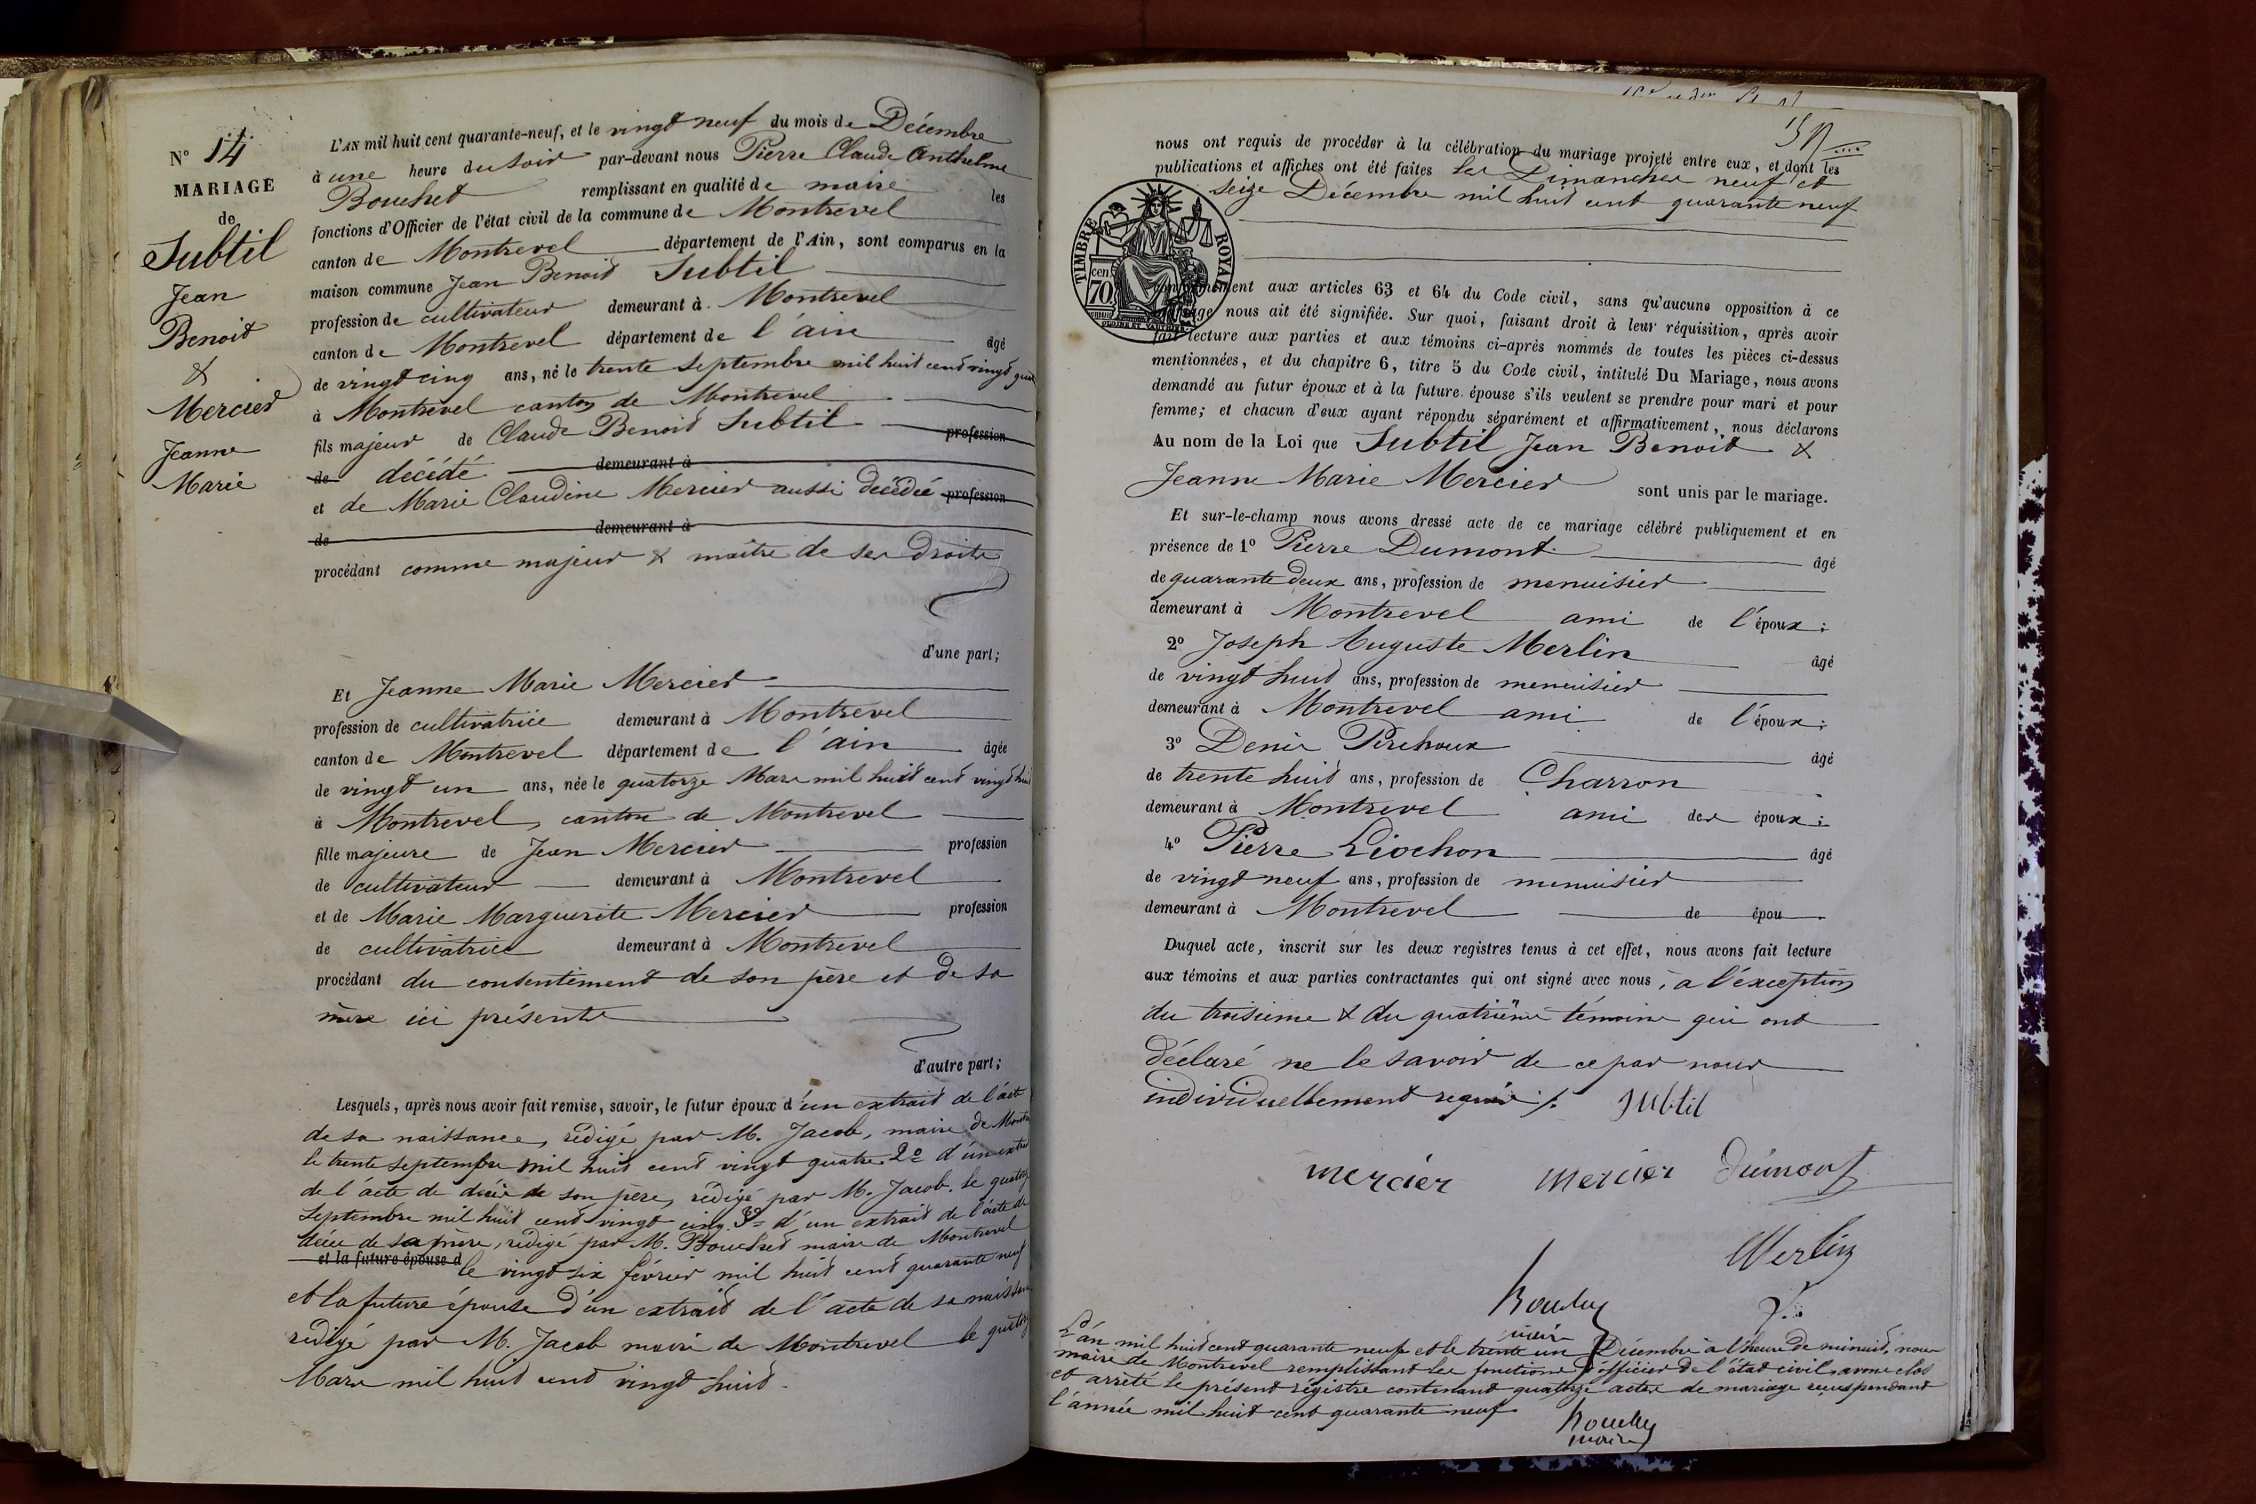 N° 14
MARIAGE
de
Subtil
Jean
Benoit
&
Mercier
Jeanne
Marie
L'AN mil huit cent quarante-neuf, et le vingt neuf du mois de Décembre
à une heure du soir par-devant nous Pierre Claude Anthelme
Bouchet remplissant en qualité de maire les
fonctions d'Officier de l'état civil de la commune de Montrevel
canton de Montrevel département de l'Ain, sont comparus en la
maison commune Jean Benoit Subtil
profession de cultivateur demeurant à Montrevel
canton de Montrevel département de l'ain âgé
de vingt cinq ans, né le trente septembre mil huit cent vingt quat
à Montrevel canton de Montrevel
fils majeur de Claude Benoit Subtil profession
de décédé demeurant à
et de Marie Claudine Mercier aussi décédée profession
de demeurant à
procédant comme majeur & maître de ses droits
d'une part;
Et Jeanne Marie Mercier
profession de cultivatrice demeurant à Montrevel
canton de Montrevel département de l'ain âgée
de vingt un ans, née le quatorze Mars mil huit cent vingt huit
à Montrevel, canton de Montrevel
fille majeure de Jean Mercier profession
de cultivateur demeurant à Montrevel
et de Marie Marguerite Mercier profession
de cultivatrice demeurant à Montrevel
procédant du consentement de son père et de sa
mère ici présents
d'autre part;
Lesquels, après nous avoir fait remise, savoir, le futur époux d'un extrait de l'acte
de sa naissance, rédigé par M. Jacob, maire de Montre
le trente septembre mil huit cent vingt quatre 2° d'un extrait
de l'acte de décès de son père, rédigé par M. Jacob, le quator
septembre mil huit cent vingt cinq 3° d'un extrait de l'acte de
décès de sa mère, rédigé par M. Bouchet maire de Montrevel
et la future épouse d le vingt six février mil huit cent quarante neuf
et la future épouse d'un extrait de l'acte de sa naissan
rédigé par M. Jacob maire de Montrevel le quatorz
Mars mil huit cent vingt huit.
nous ont requis de procéder à la célébration du mariage projeté entre eux, et dont les
publications et affiches ont été faites les Dimanches neuf et
seize Décembre mil huit cent quarante neuf
TIMBRE ROYAL
cen.
70
conformément aux articles 63 et 64 du Code civil, sans qu'aucune opposition à ce
mariage nous ait été signifiée. Sur quoi, faisant droit à leur réquisition, après avoir
fait lecture aux parties et aux témoins ci-après nommés de toutes les pièces ci-dessus
mentionnées, et du chapitre 6, titre 5 du Code civil, intitulé Du Mariage, nous avons
demandé au futur époux et à la future épouse s'ils veulent se prendre pour mari et pour
femme; et chacun d'eux ayant répondu séparément et affirmativement, nous déclarons
Au nom de la Loi que Subtil Jean Benoit &
Jeanne Marie Mercier sont unis par le mariage.
Et sur-le-champ nous avons dressé acte de ce mariage célébré publiquement et en
présence de 1° Pierre Dumont âgé
de quarante deux ans, profession de menuisier
demeurant à Montrevel ami de l'époux;
2° Joseph Auguste Merlin âgé
de vingt huit ans, profession de menuisier
demeurant à Montrevel ami de l'époux;
3° Denis Pirchoux âgé
de trente huit ans, profession de Charron
demeurant à Montrevel ami des époux;
4° Pierre Liochon âgé
de vingt neuf ans, profession de menuisier
demeurant à Montrevel de épou
Duquel acte, inscrit sur les deux registres tenus à cet effet, nous avons fait lecture
aux témoins et aux parties contractantes qui ont signé avec nous, à l'éxception
du troisième & du quatrième témoins qui ont
déclaré ne le savoir de ce par nous
individuellement requis ./.
Subtil
mercier mercier Dumont
Merlin
Bouchet
maire
L'an mil huit cent quarante neuf et le trente un Décembre à l'heure de minuit, nous
maire de Montrevel remplissant les fonctions d'officier de l'état civil, avons clos
et arrêté le présent régistre contenant quatorze actes de mariage reçus pendant
l'année mil huit cent quarante neuf
Bouchet
maire